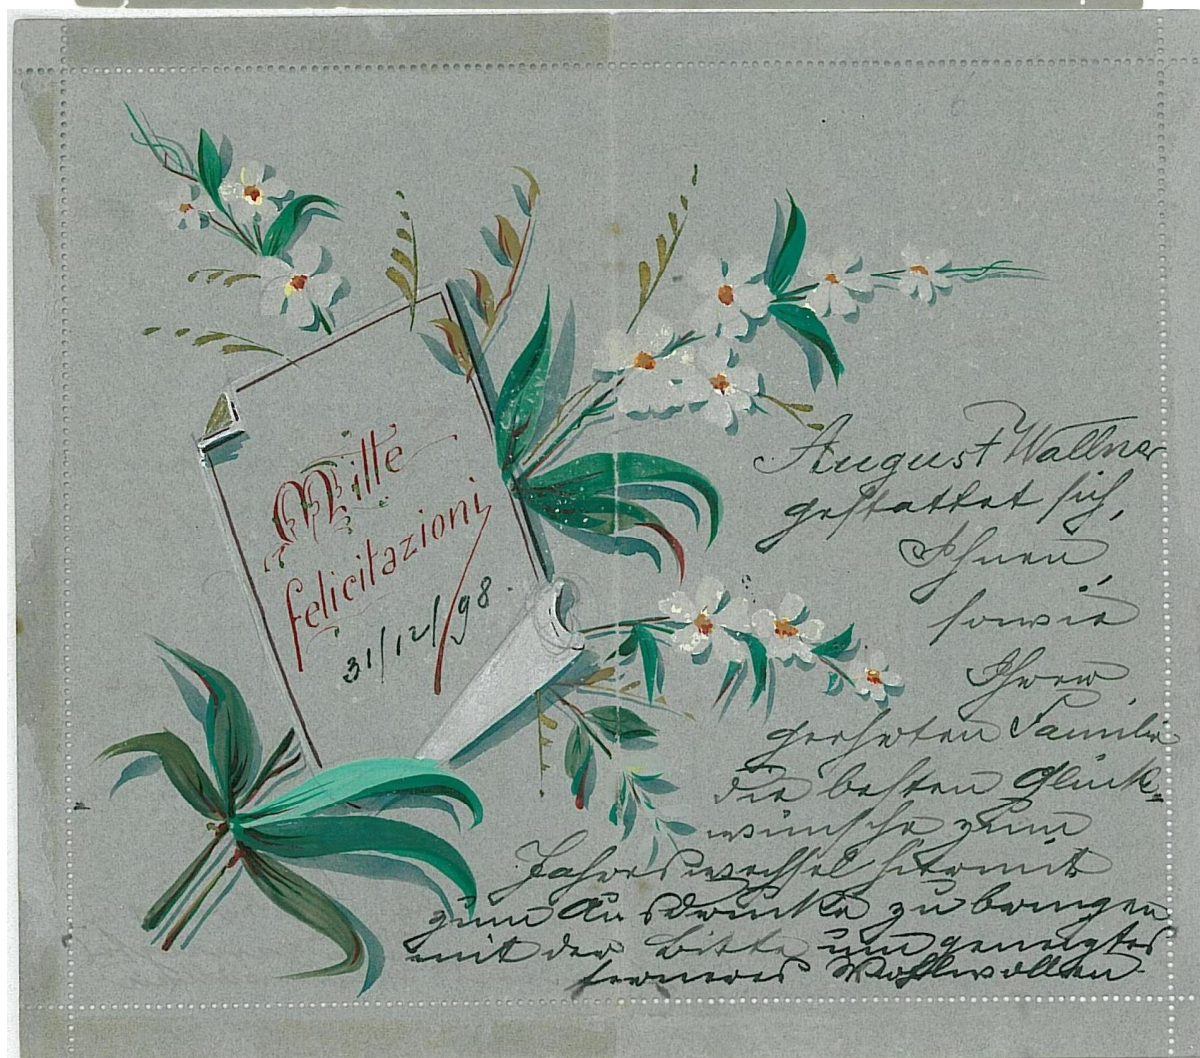 Mille
felicitazioni
31/12/98.
August Wallner
gestattet sich,
Ihnen,
sowie
Ihrer
geehrten Familie
die besten Glück-
wünsche zum
Jahreswechsel hiermit
zum Ausdrucke zu bringen
mit der Bitte um geneigtes
ferneres Wohlwollen.